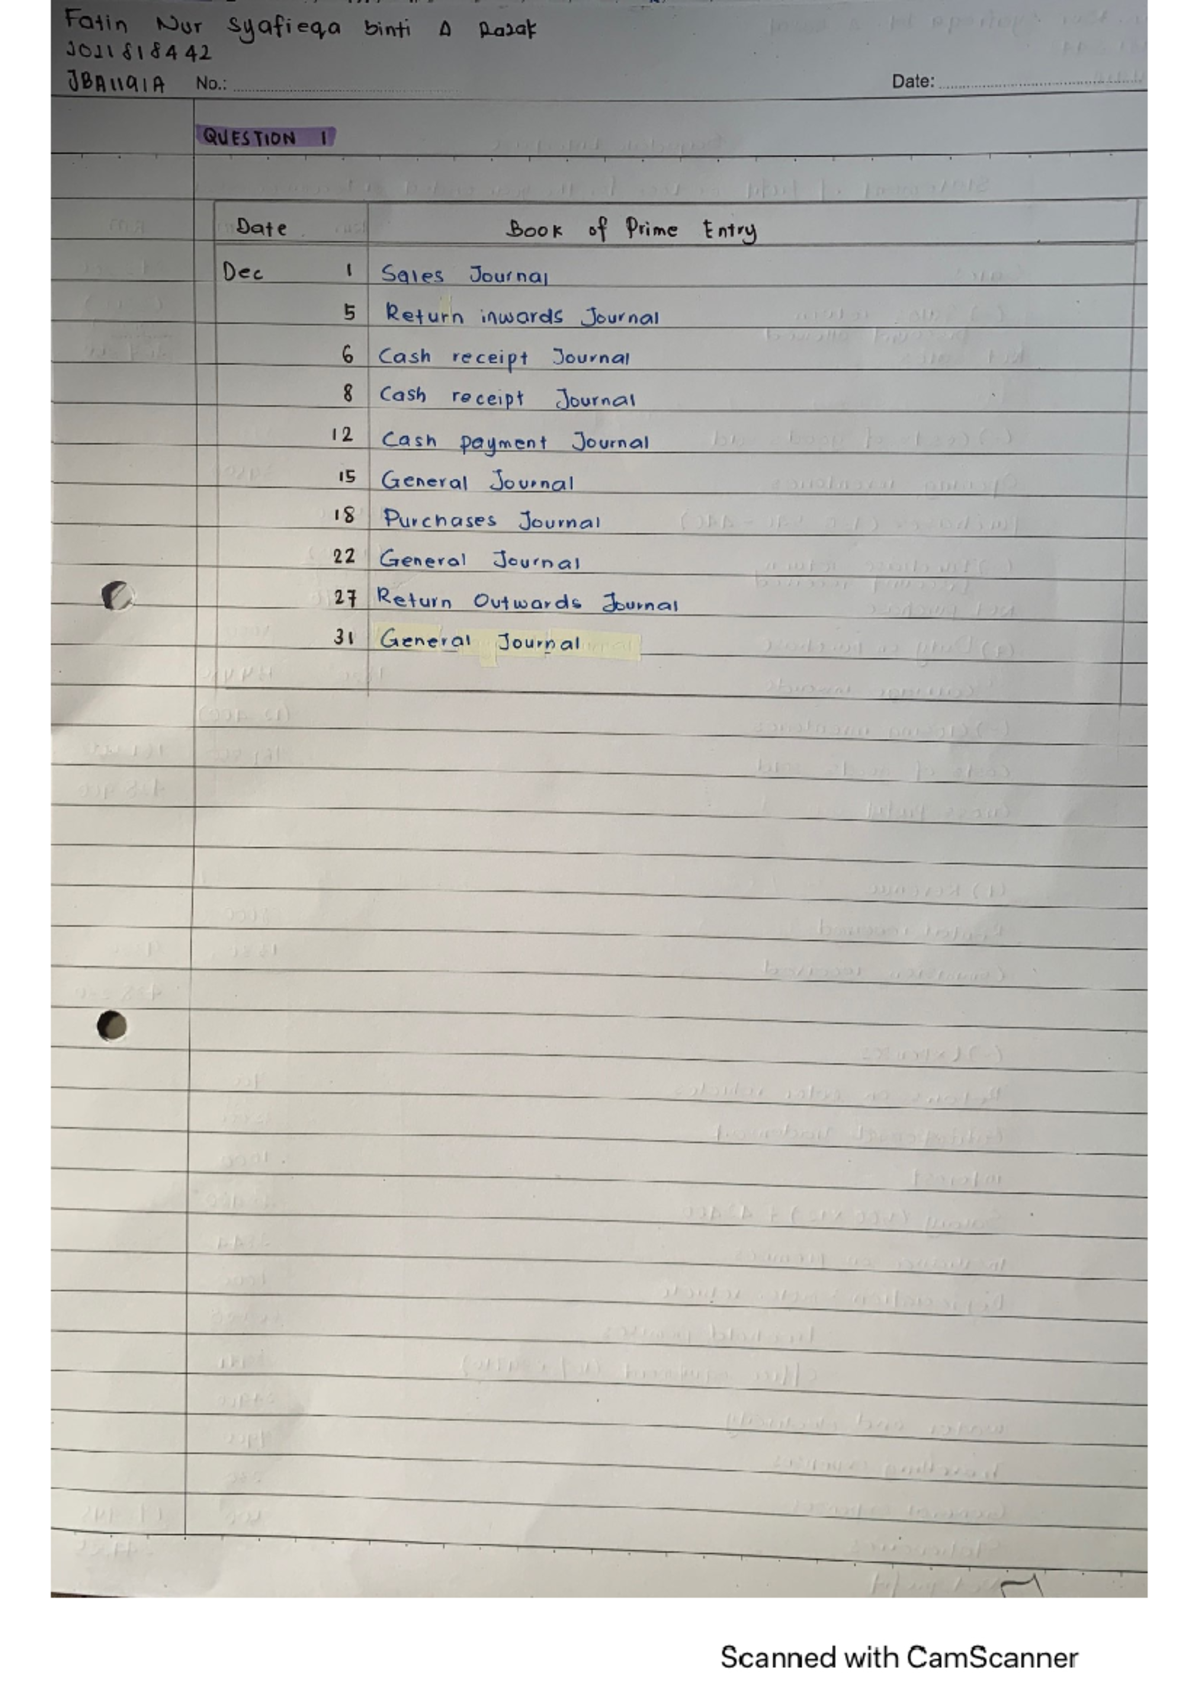 Fatin Nur Syafieqa binti A Razak
2021818442
JBA1191A No.: Date:
QUESTION 1
Date Book of Prime Entry
Dec 1 Sales Journal
5 Return inwards Journal
6 Cash receipt Journal
8 Cash receipt Journal
12 Cash payment Journal
15 General Journal
18 Purchases Journal
22 General Journal
27 Return Outwards Journal
31 General Journal
Scanned with CamScanner